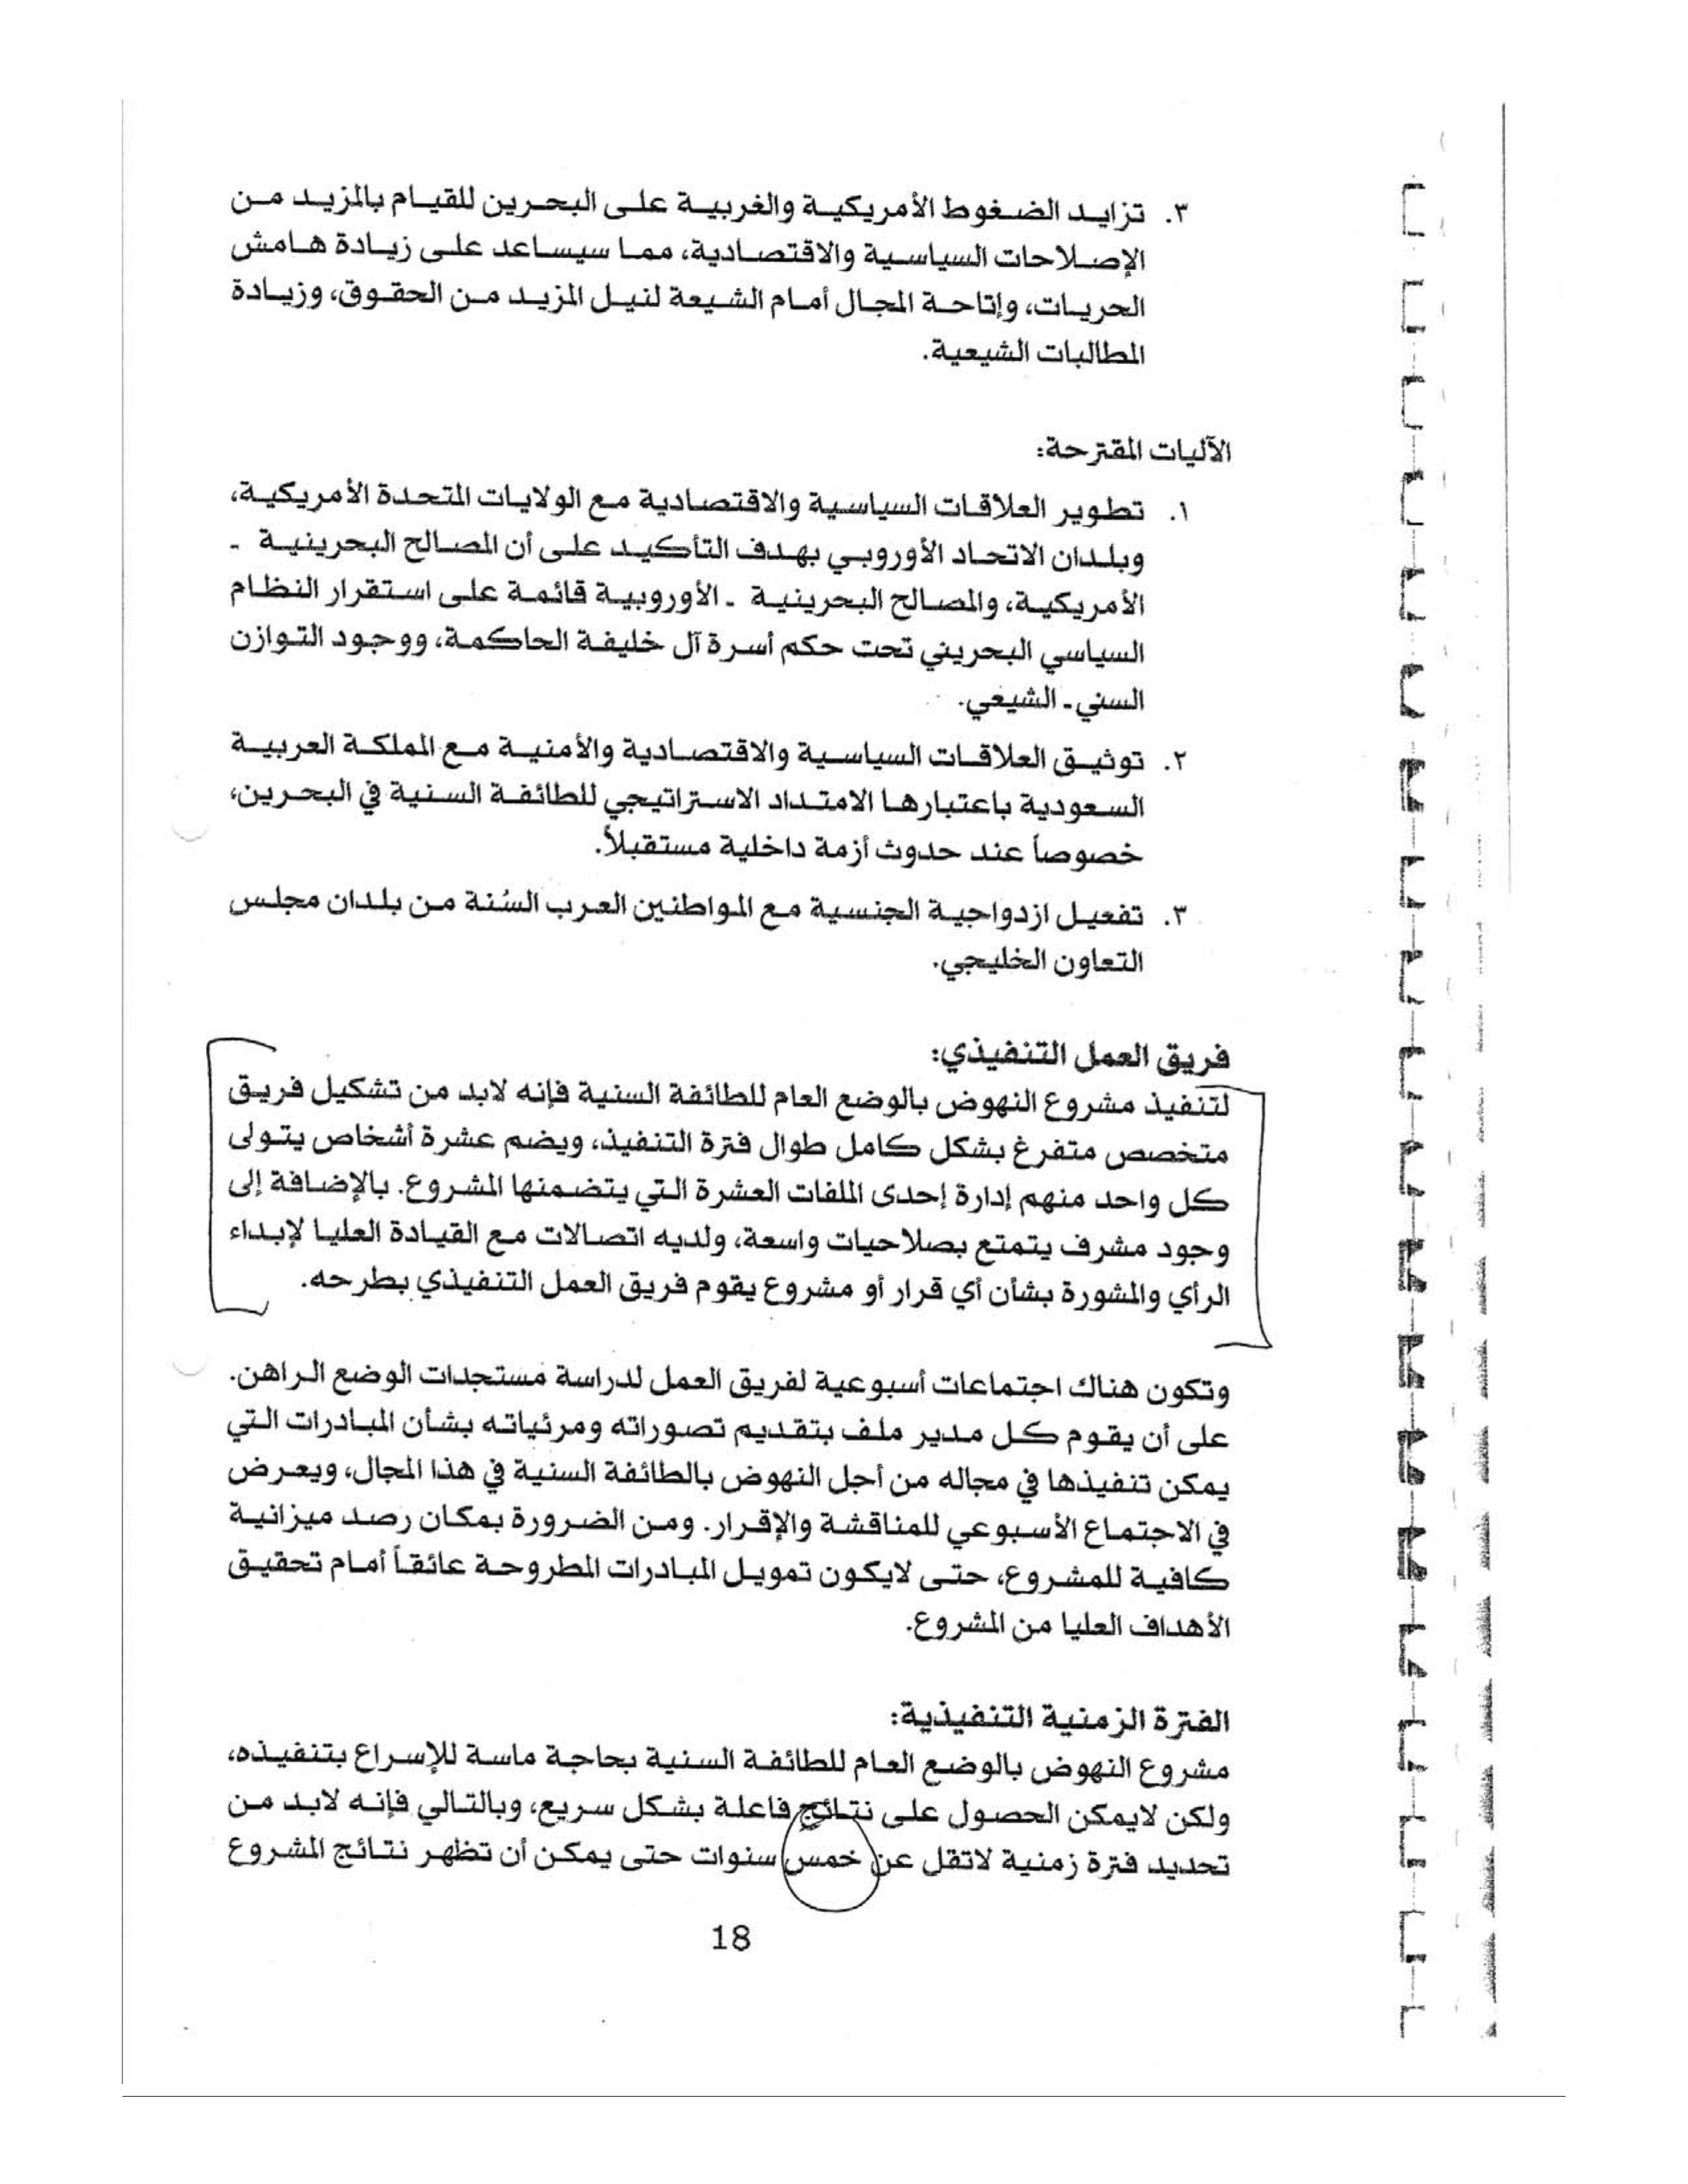 ٣. تزايد الضغوط الأمريكية والغربية على البحرين للقيام بالمزيد من
الإصلاحات السياسية والاقتصادية، مما سيساعد على زيادة هامش
الحريات، وإتاحة المجال أمام الشيعة لنيل المزيد من الحقوق، وزيادة
المطالبات الشيعية.
الآليات المقترحة:
١. تطوير العلاقات السياسية والاقتصادية مع الولايات المتحدة الأمريكية،
وبلدان الاتحاد الأوروبي بهدف التأكيد على أن المصالح البحرينية -
الأمريكية، والمصالح البحرينية - الأوروبية قائمة على استقرار النظام
السياسي البحريني تحت حكم أسرة آل خليفة الحاكمة، ووجود التوازن
السني - الشيعي.
٢. توثيق العلاقات السياسية والاقتصادية والأمنية مع المملكة العربية
السعودية باعتبارها الامتداد الاستراتيجي للطائفة السنية في البحرين،
خصوصاً عند حدوث أزمة داخلية مستقبلاً.
٣. تفعيل ازدواجية الجنسية مع المواطنين العرب السُنة من بلدان مجلس
التعاون الخليجي.
فريق العمل التنفيذي:
لتنفيذ مشروع النهوض بالوضع العام للطائفة السنية فإنه لابد من تشكيل فريق
متخصص متفرغ بشكل كامل طوال فترة التنفيذ، ويضم عشرة أشخاص يتولى
كل واحد منهم إدارة إحدى الملفات العشرة التي يتضمنها المشروع. بالإضافة إلى
وجود مشرف يتمتع بصلاحيات واسعة، ولديه اتصالات مع القيادة العليا لإبداء
الرأي والمشورة بشأن أي قرار أو مشروع يقوم فريق العمل التنفيذي بطرحه.
وتكون هناك اجتماعات أسبوعية لفريق العمل لدراسة مستجدات الوضع الراهن.
على أن يقوم كل مدير ملف بتقديم تصوراته ومرئياته بشأن المبادرات التي
يمكن تنفيذها في مجاله من أجل النهوض بالطائفة السنية في هذا المجال، ويعرض
في الاجتماع الأسبوعي للمناقشة والإقرار. ومن الضرورة بمكان رصد ميزانية
كافية للمشروع، حتى لايكون تمويل المبادرات المطروحة عائقاً أمام تحقيق
الأهداف العليا من المشروع.
الفترة الزمنية التنفيذية:
مشروع النهوض بالوضع العام للطائفة السنية بحاجة ماسة للإسراع بتنفيذه،
ولكن لايمكن الحصول على نتائج فاعلة بشكل سريع، وبالتالي فإنه لابد من
تحديد فترة زمنية لاتقل عن خمس سنوات حتى يمكن أن تظهر نتائج المشروع
18